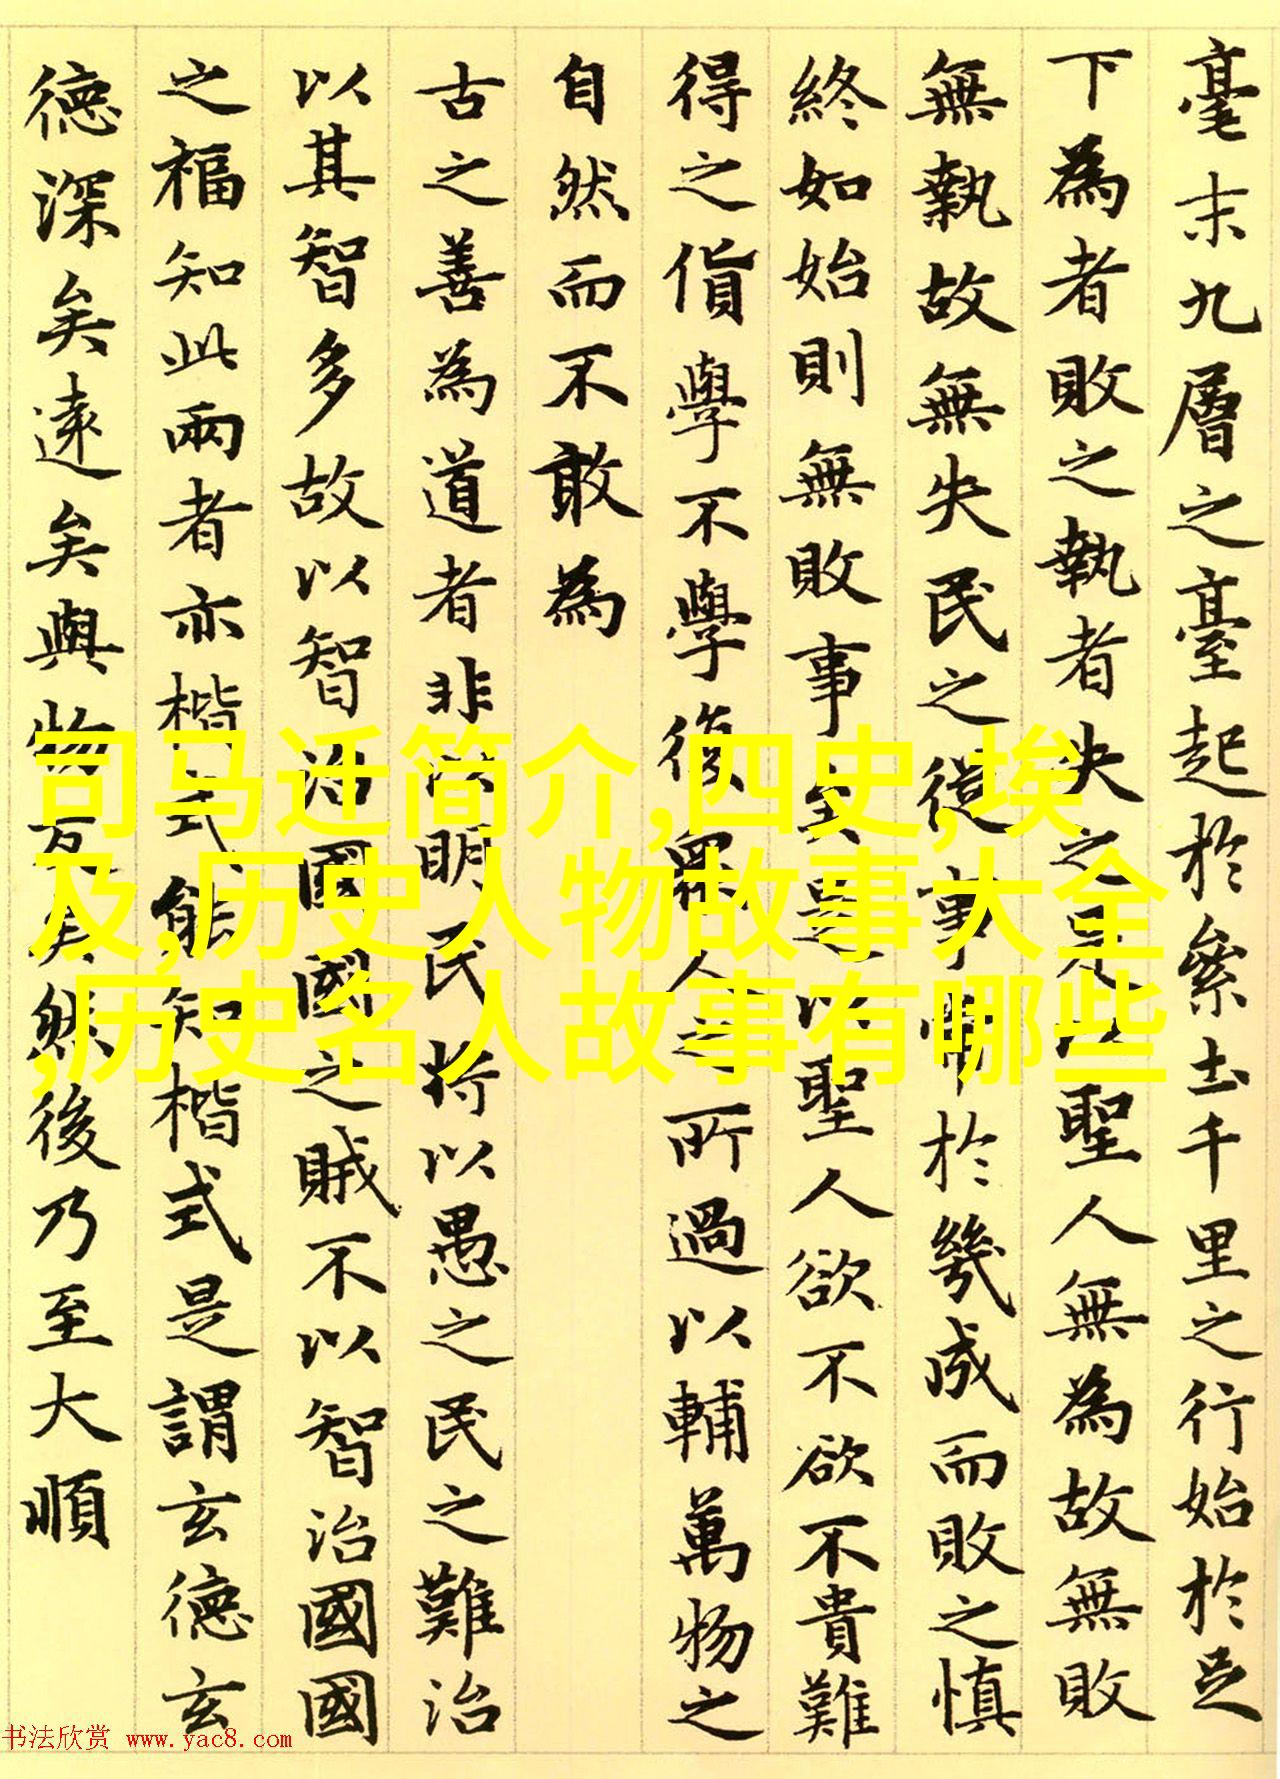 毫末九層之臺起於絫土千里之行始於足
下為者敗之執者失之是以聖人無為故無敗
無執故無失民之從事常於幾成而敗之慎
終如始則無敗事矣是以聖人欲不欲不貴難
得之貨學不學復眾人之所過以輔萬物之
自然而不敢為
古之善為道者非以明民將以愚之民之難治
以其智多故以智治國國之賊不以智治國國
之福知此兩者亦楷式能知楷式是謂玄德玄
德深矣遠矣與物反矣然後乃至大順
司马迁简介,四史,埃
及,历史人物故事大全
,历史名人故事有哪些
书法欣赏 www.yac8.com